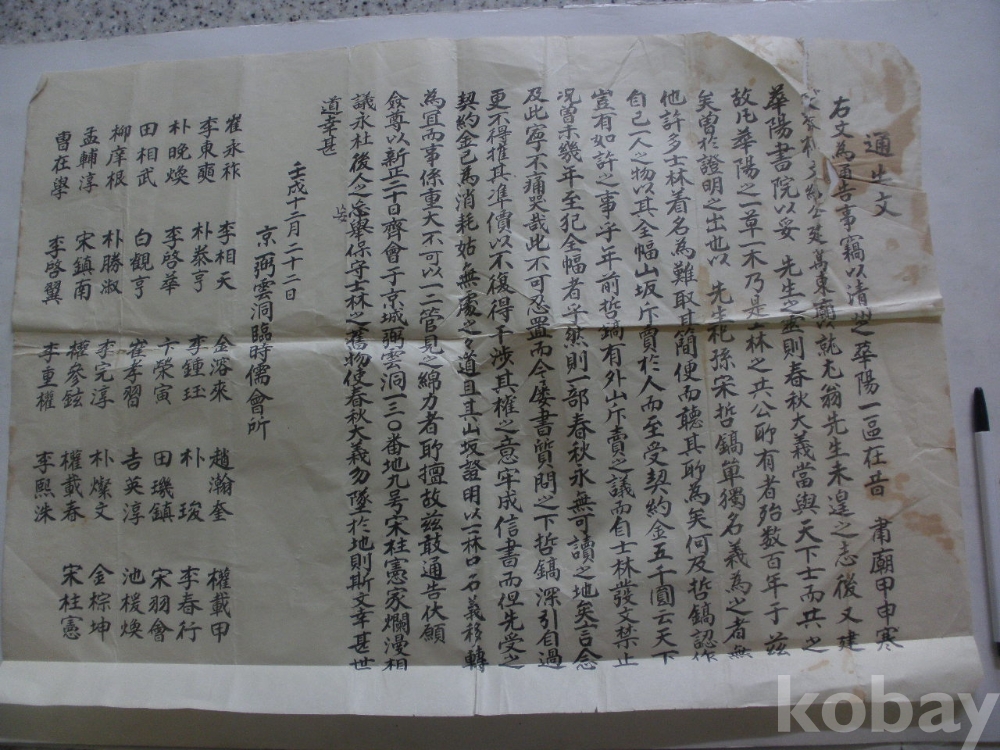 通告文
右文為通告事竊以清州之華陽一區在昔 肅廟甲申寒
萬東廟就尤翁先生未遑之志後又建
華陽書院以妥 先生之靈則春秋大義當與天下士而共之
故凡華陽之一草一木乃是士林之共公所有者殆数百年于玆
矣曾於證明之出也以 先生祀孫宋哲鎬單獨名義為之者無
他許多士林着名為難取其簡便而聽其所為矣何及哲鎬認作
自己一人之物以其全幅山坂斥賣於人而至受契約金五千圓云天下
豈有如許之事乎年前哲鎬有外山斥賣之議而自士林發文禁止
况曾未幾年至犯全幅者乎然則一部春秋永無可讀之地矣言念
及此寧不痛哭哉此不可忍置而今書質問之下哲鎬深引自過
更不得推其準價以不復得干涉其權之意牢成信書而但先受之
契約金已為消耗姑無處之之道且其山坂證明以林名義移轉
為宜而事係重大不可以一二管見之綿力者所擅故玆敢通告伏願
僉尊以新正二十日齊會于京城弼雲洞一三〇番地九号宋柱憲家爛漫相
議永杜後人之擧保守士林之舊物使春秋大義勿墜於地則斯文幸甚世
道幸甚
壬戌十二月二十二日
京弼雲洞臨時儒會所
崔永祚 李相天 金溶來 趙瀚奎 權載甲
李東奭 朴泰亨 李鍾珏 朴埈 李春行
朴晚煥 李啓華 卞榮寅 田璣鎮 宋羽會
田相武 白觀亨 崔孝習 吉英淳 池楥煥
柳庠根 朴勝淑 李完淳 朴燦文 金棕坤
孟輔淳 宋鎮南 權參鉉 權載春 宋柱憲
曺在學 李啓翼 李重權 李熙洙
kobay